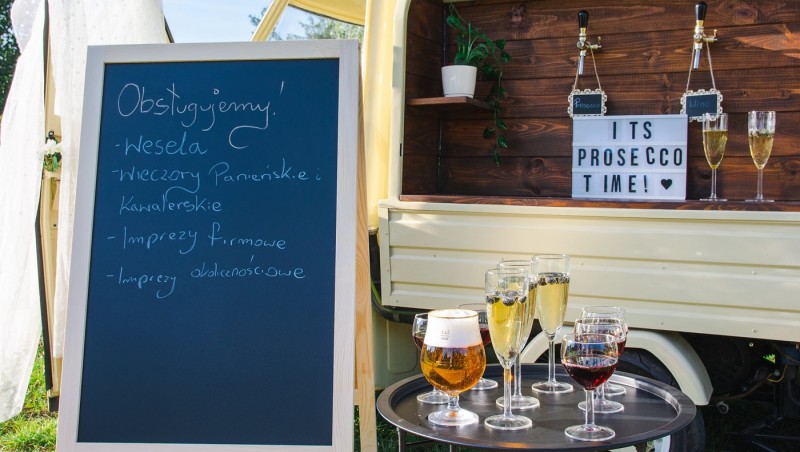 Obsługujemy!
- Wesela
- Wieczory Panieńskie i
Kawalerskie
- Imprezy firmowe
- Imprezy okolicznościowe
Prosecco
Wino
ITS
PROSECCO
TIME! ♥